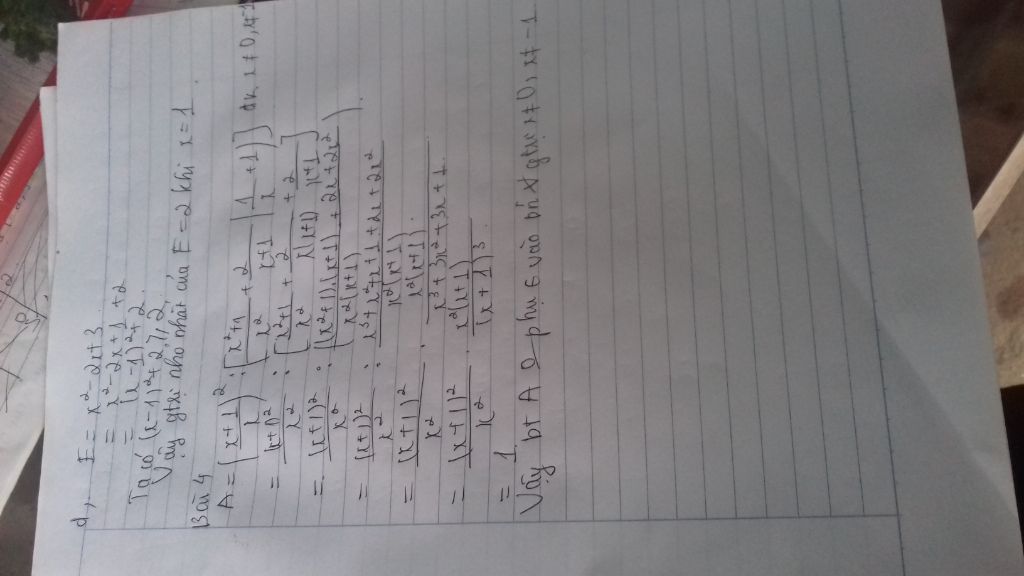 d, E = x² - 2x + 3.
= x² - 2x + 1 + 2
= (x - 1)² + 2.
Ta có (x - 1)² + 2 ≥ 2
Vậy gtrị nhỏ nhất của E = 2 khi x = 1
Bài 4
A = (x+1 / x)² : [x²+1 / x² + 2 / x+1 (1 / x + 1)] đk x ≠ 0, x ≠ -1
= (x+1)² / x² : [x²+1 / x² + 2 / x+1 + 2 / x(x+1)]
= (x+1)² / x² : ((x²+1).(x+1) + 2x + 2x² / x²(x+1)).
= (x+1)² / x² : x³ + x² + x + 1 + 2x + 2x² / x²(x+1)
= (x+1)² / x² . x²(x+1) / x³ + 3x² + 3x + 1.
= (x+1)² / x² . x²(x+1) / (x+1)³.
= 1
Vậy bt A phụ vào biến x gtrị x ≠ 0, x ≠ -1